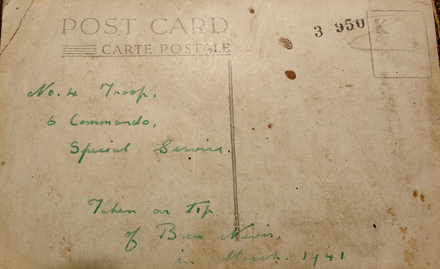 POST CARD
CARTE POSTALE
3 950
K
No. 4 Troop,
6 Commando,
Special Service.
Taken on top
of Ben Nevis,
in March. 1941